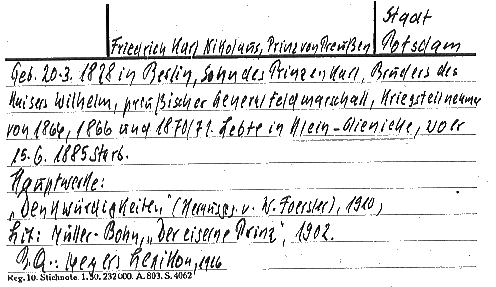 Stadt
Friedrich Karl Nikolaus, Prinz von Preußen
Potsdam
Geb. 20.3. 1828 in Berlin, Sohn des Prinzen Karl, Bruders des
Kaisers Wilhelm, preußischer Generalfeldmarschall, Kriegsteilnehmer
von 1864, 1866 und 1870/71. Lebte in Klein-Glienicke, wo er
15.6. 1885 starb.
Hauptwerke:
„Denkwürdigkeiten" (Herausg. v. W. Foerster), 1910,
Lit: Müller-Bohn, „Der eiserne Prinz", 1902.
B.Q.: Meyers Lexikon, 1926
Reg. 10. Stichnote. 1.30. 232000. A. 803. S. 4062